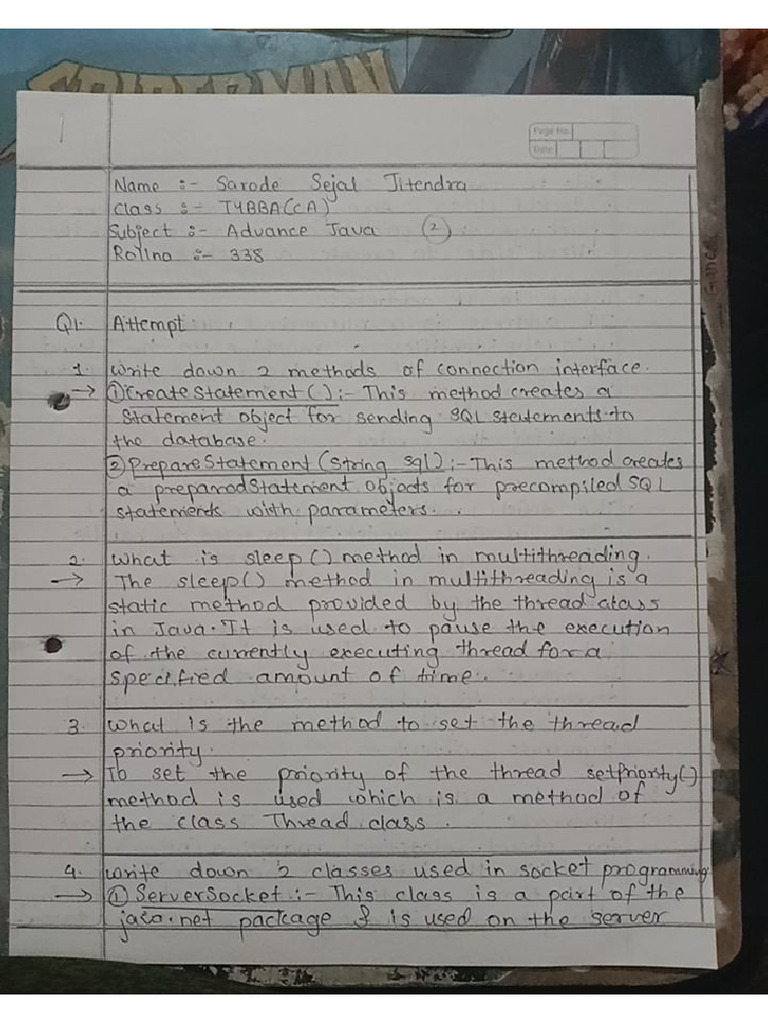 SPIDERMAN
1
Page No.
Date
Name :- Sarode Sejal Jitendra
Class :- TYBBA(CA)
Subject :- Advance Java (2)
Rollno :- 338
Q1. Attempt
1. Write down 2 methods of connection interface.
→ ① Createstatement() :- This method creates a
statement object for sending SQL statements to
the database.
② PrepareStatement (String sql) :- This method creates
a preparedstatement objects for precompiled SQL
statements with parameters.
2. What is sleep() method in multithreading.
→ The sleep() method in multithreading is a
static method provided by the thread class
in Java. It is used to pause the execution
of the currently executing thread for a
specified amount of time.
3. What is the method to set the thread
priority.
→ To set the priority of the thread setpriority()
method is used which is a method of
the class Thread class.
4. Write down 2 classes used in socket programming
→ ① ServerSocket :- This class is a part of the
java.net package & is used on the server